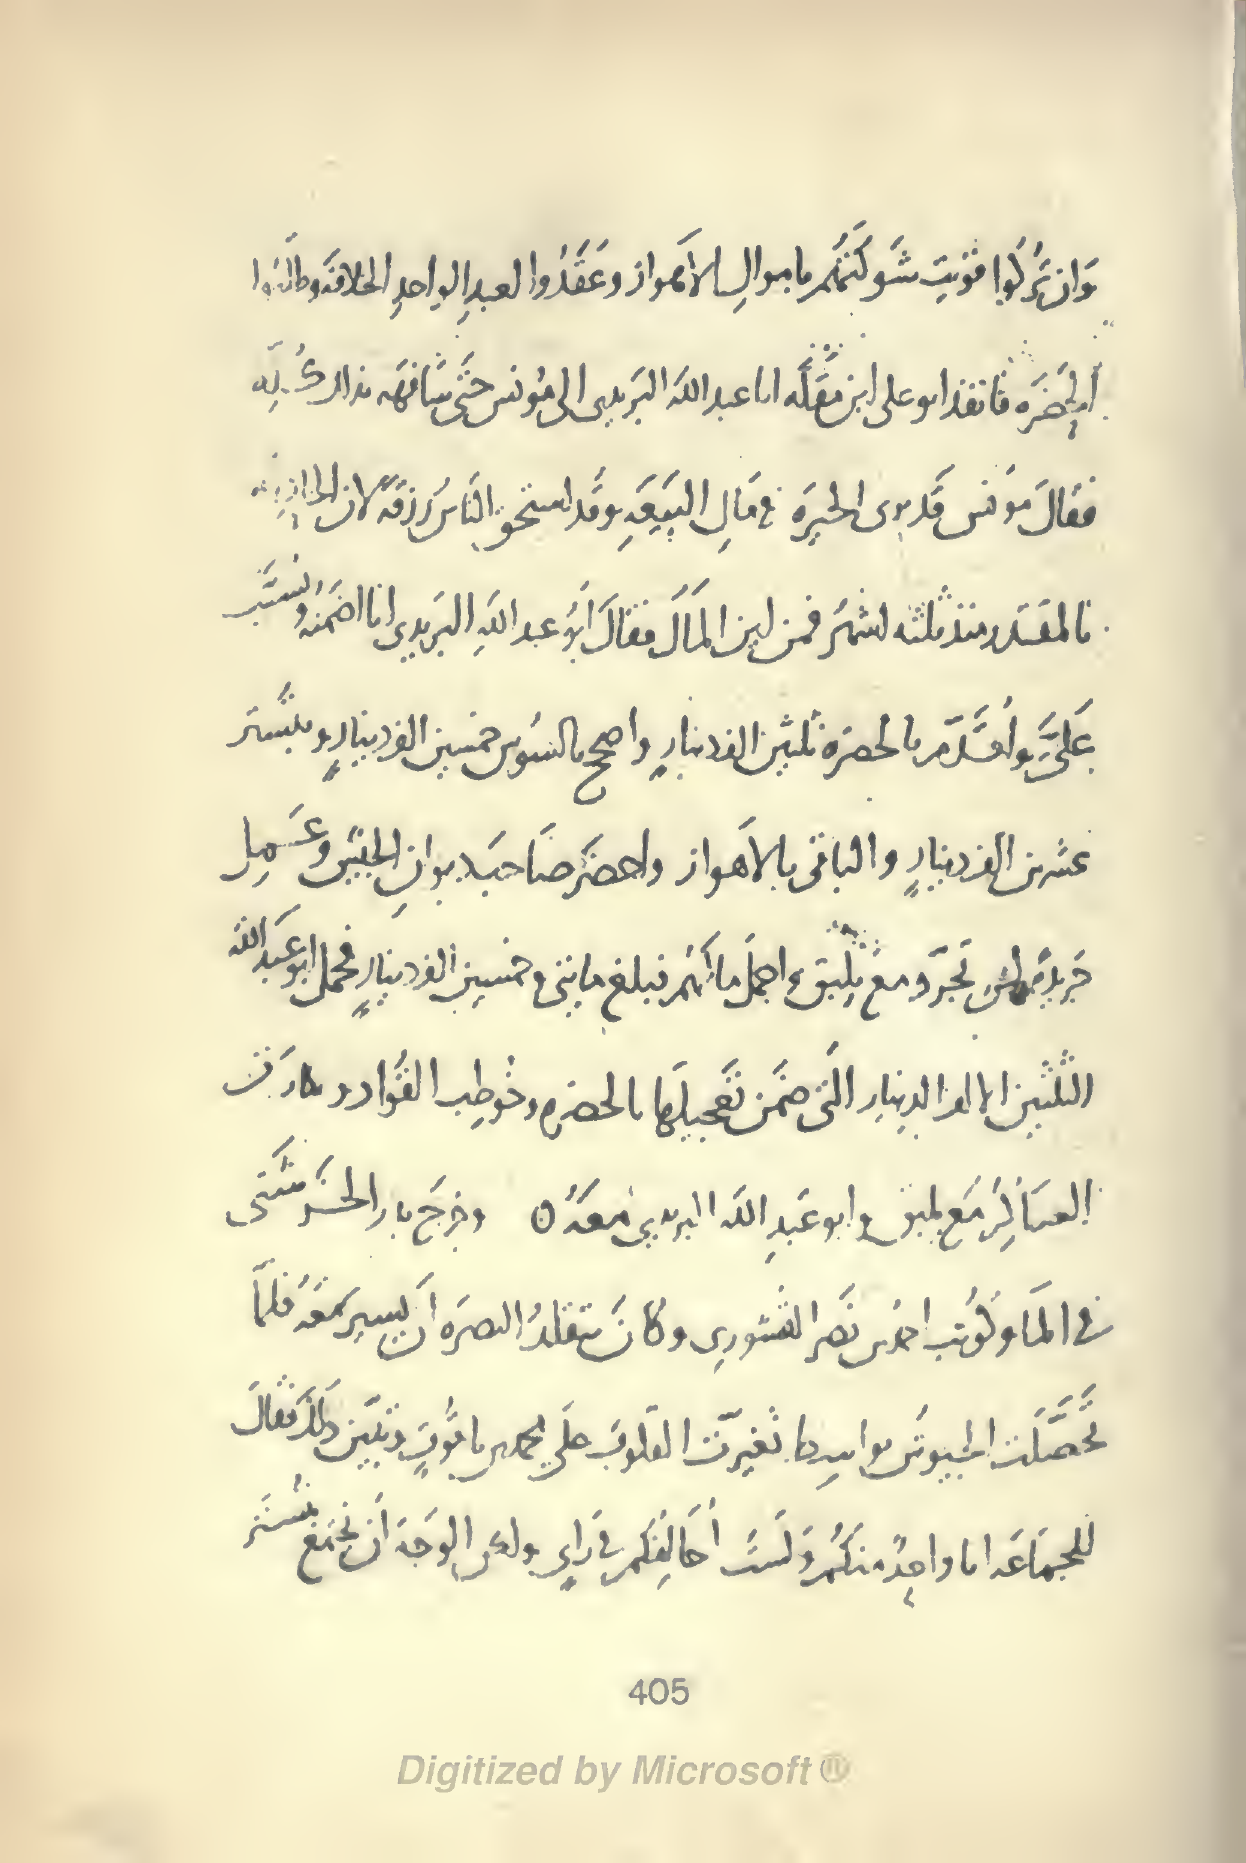 وَان تُركُوا قَوِيت شَوكَتُهُم باموالِ الاَهواز وعَقَدُوا لعبدِ الواحدِ الخلافَة وطَلَبُوا
الحَضرَه فانفذ ابو علي ابن مُقلَه ابا عبد الله البَريدي الى مُونس حَتَّى شافهَه بذلك كُلِّه
فقالَ مونس قَد بوى الحيرَة في مَالِ البَيعَهِ وقَد استحق النَّاسُ رزقَةً لان
بالمقتدر منذ ثلثه اشهُر فمن اين المَال فقالَ ابُو عبد اللهِ البَريدي انا اضمَنُه وتسبَّب
عَلَيَّ واُقَدِّم بالحضرَه ثلثين الف دينارٍ واصحح بالسُوس خمسين الف دينارٍ وبتُستَر
عشرين الف دينارٍ والباقي بالاَهواز واحضَر صَاحبَ ديوانِ الجَيش وعَمِل
جَريدةً لمَن تجرَّد مع بليق واجملَ مالَهُم فبلغ مايتي وخمسين الف دينارٍ فحمل ابو عَبد الله
الثلثين الالف الدينار الَّتي ضمَن تَعجيلَها بالحضره وخُوطِب القُوّاد وسارَت
العسَاكِرُ مَع بليق وابو عَبدِ الله البريدي مَعَهُ ه وخرَج بدر الخَرشَني
في المَا وكُوتب احمد بن نَصر القُشوري وكانَ يتقلدُ البصرَه ان يَسير مَعَهُ فلمّا
تَحصَّلَت الجيوش بواسط تَغيرّت القلوب علَى محمد بن ياقُوتٍ وتبيَّن ذلك فقالَ
للجمَاعَه انا واحِدٌ منكُم ولَستُ أُخَالِفُكم في رَايٍ ولكن الوَجهَ اَن نجتمع بتُستَر
405
Digitized by Microsoft ®